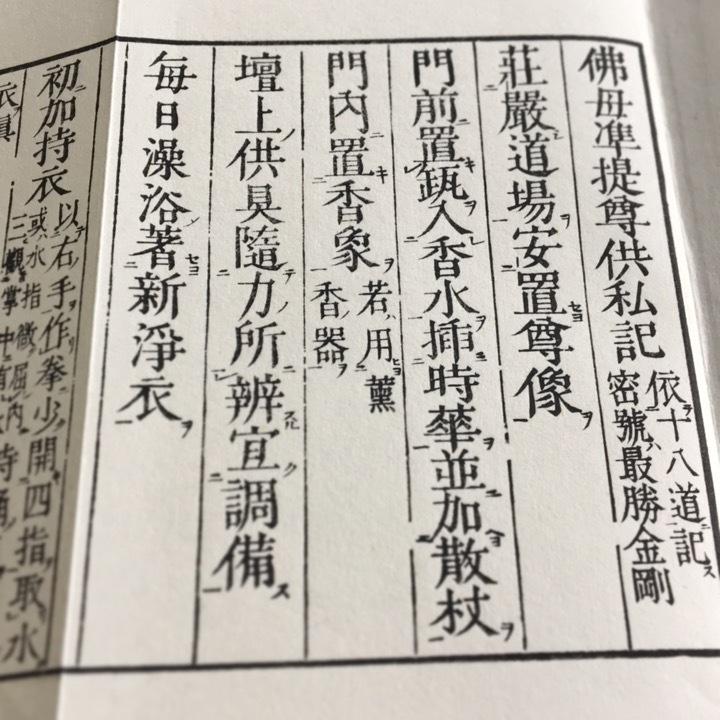 佛母准提尊供私記
依十八道記
密號最勝金剛
莊嚴道場安置尊像
門前置瓶入香水揷時華並加散杖
門內置香象
若用薰
香器
壇上供具隨力所辨宜調備
每日澡浴著新淨衣
初加持衣
以右手作拳少開四指取水
或水指微屈內
觀掌中有